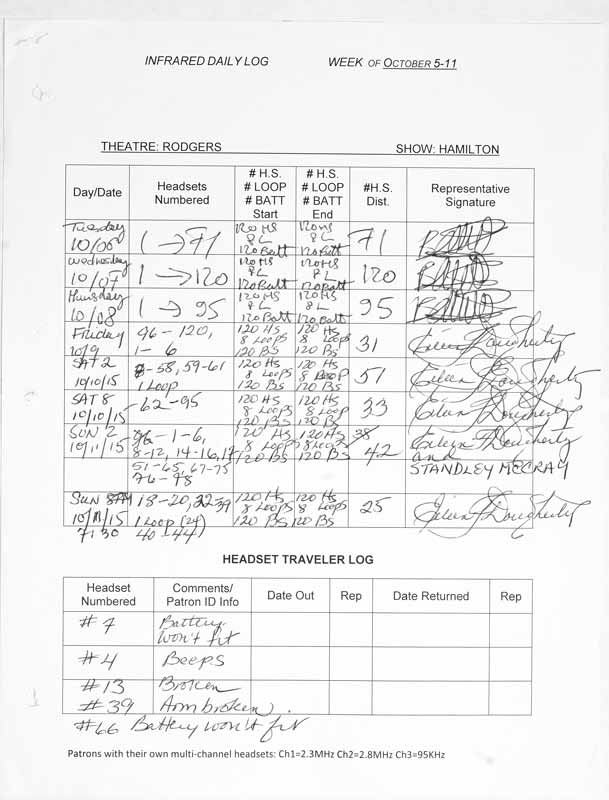 INFRARED DAILY LOG WEEK OF OCTOBER 5-11
THEATRE: RODGERS SHOW: HAMILTON
Day/Date Headsets Numbered # H.S. # LOOP # BATT Start # H.S. # LOOP # BATT End #H.S. Dist. Representative Signature
Tuesday 10/06 1 → 71 120 HS 8 L 120 Batt 120 HS 8 L 120 Batt 71
Wednesday 10/07 1 → 120 120 HS 8 L 120 Batt 120 HS 8 L 120 Batt 120
Thursday 10/08 1 → 95 120 HS 8 L 120 Batt 120 HS 8 L 120 Batt 95
Friday 10/9 96-120, 1-6 120 HS 8 Loops 120 BS 120 HS 8 Loops 120 BS 31 Eileen J Dougherty
SAT 2 10/10/15 -58, 59-61 1 Loop 120 HS 8 Loops 120 BS 120 HS 8 Loop 120 BS 51 Eileen J Dougherty
SAT 8 10/10/15 62-95 120 HS 8 Loops 120 BS 120 HS 8 Loops 120 BS 33 Eileen J Dougherty
SUN 2 10/11/15 96-1-6, 8-12, 14-16, 17 51-65, 67-75 76-78 120 HS 8 Loops 120 BS 120 HS 8 Loops 120 BS 38 42 Eileen J Dougherty and STANDLEY MCCRAY
SUN 10/11/15 7:30 18-20, 22-39 1 Loop (24) 40-44) 120 HS 8 Loops 120 BS 120 HS 8 Loops 120 BS 25 Eileen J Dougherty
HEADSET TRAVELER LOG
Headset Numbered Comments/ Patron ID Info Date Out Rep Date Returned Rep
#7 Battery won't fit
#4 Beeps
#13 Broken
#39 Arm broken.
#66 Battery won't fit
Patrons with their own multi-channel headsets: Ch1=2.3MHz Ch2=2.8MHz Ch3=95KHz